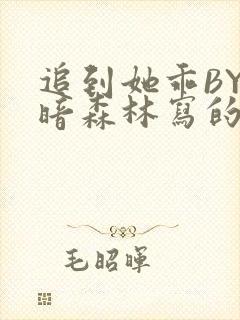 追到她乖BY
暗森林寫的
毛昭暉